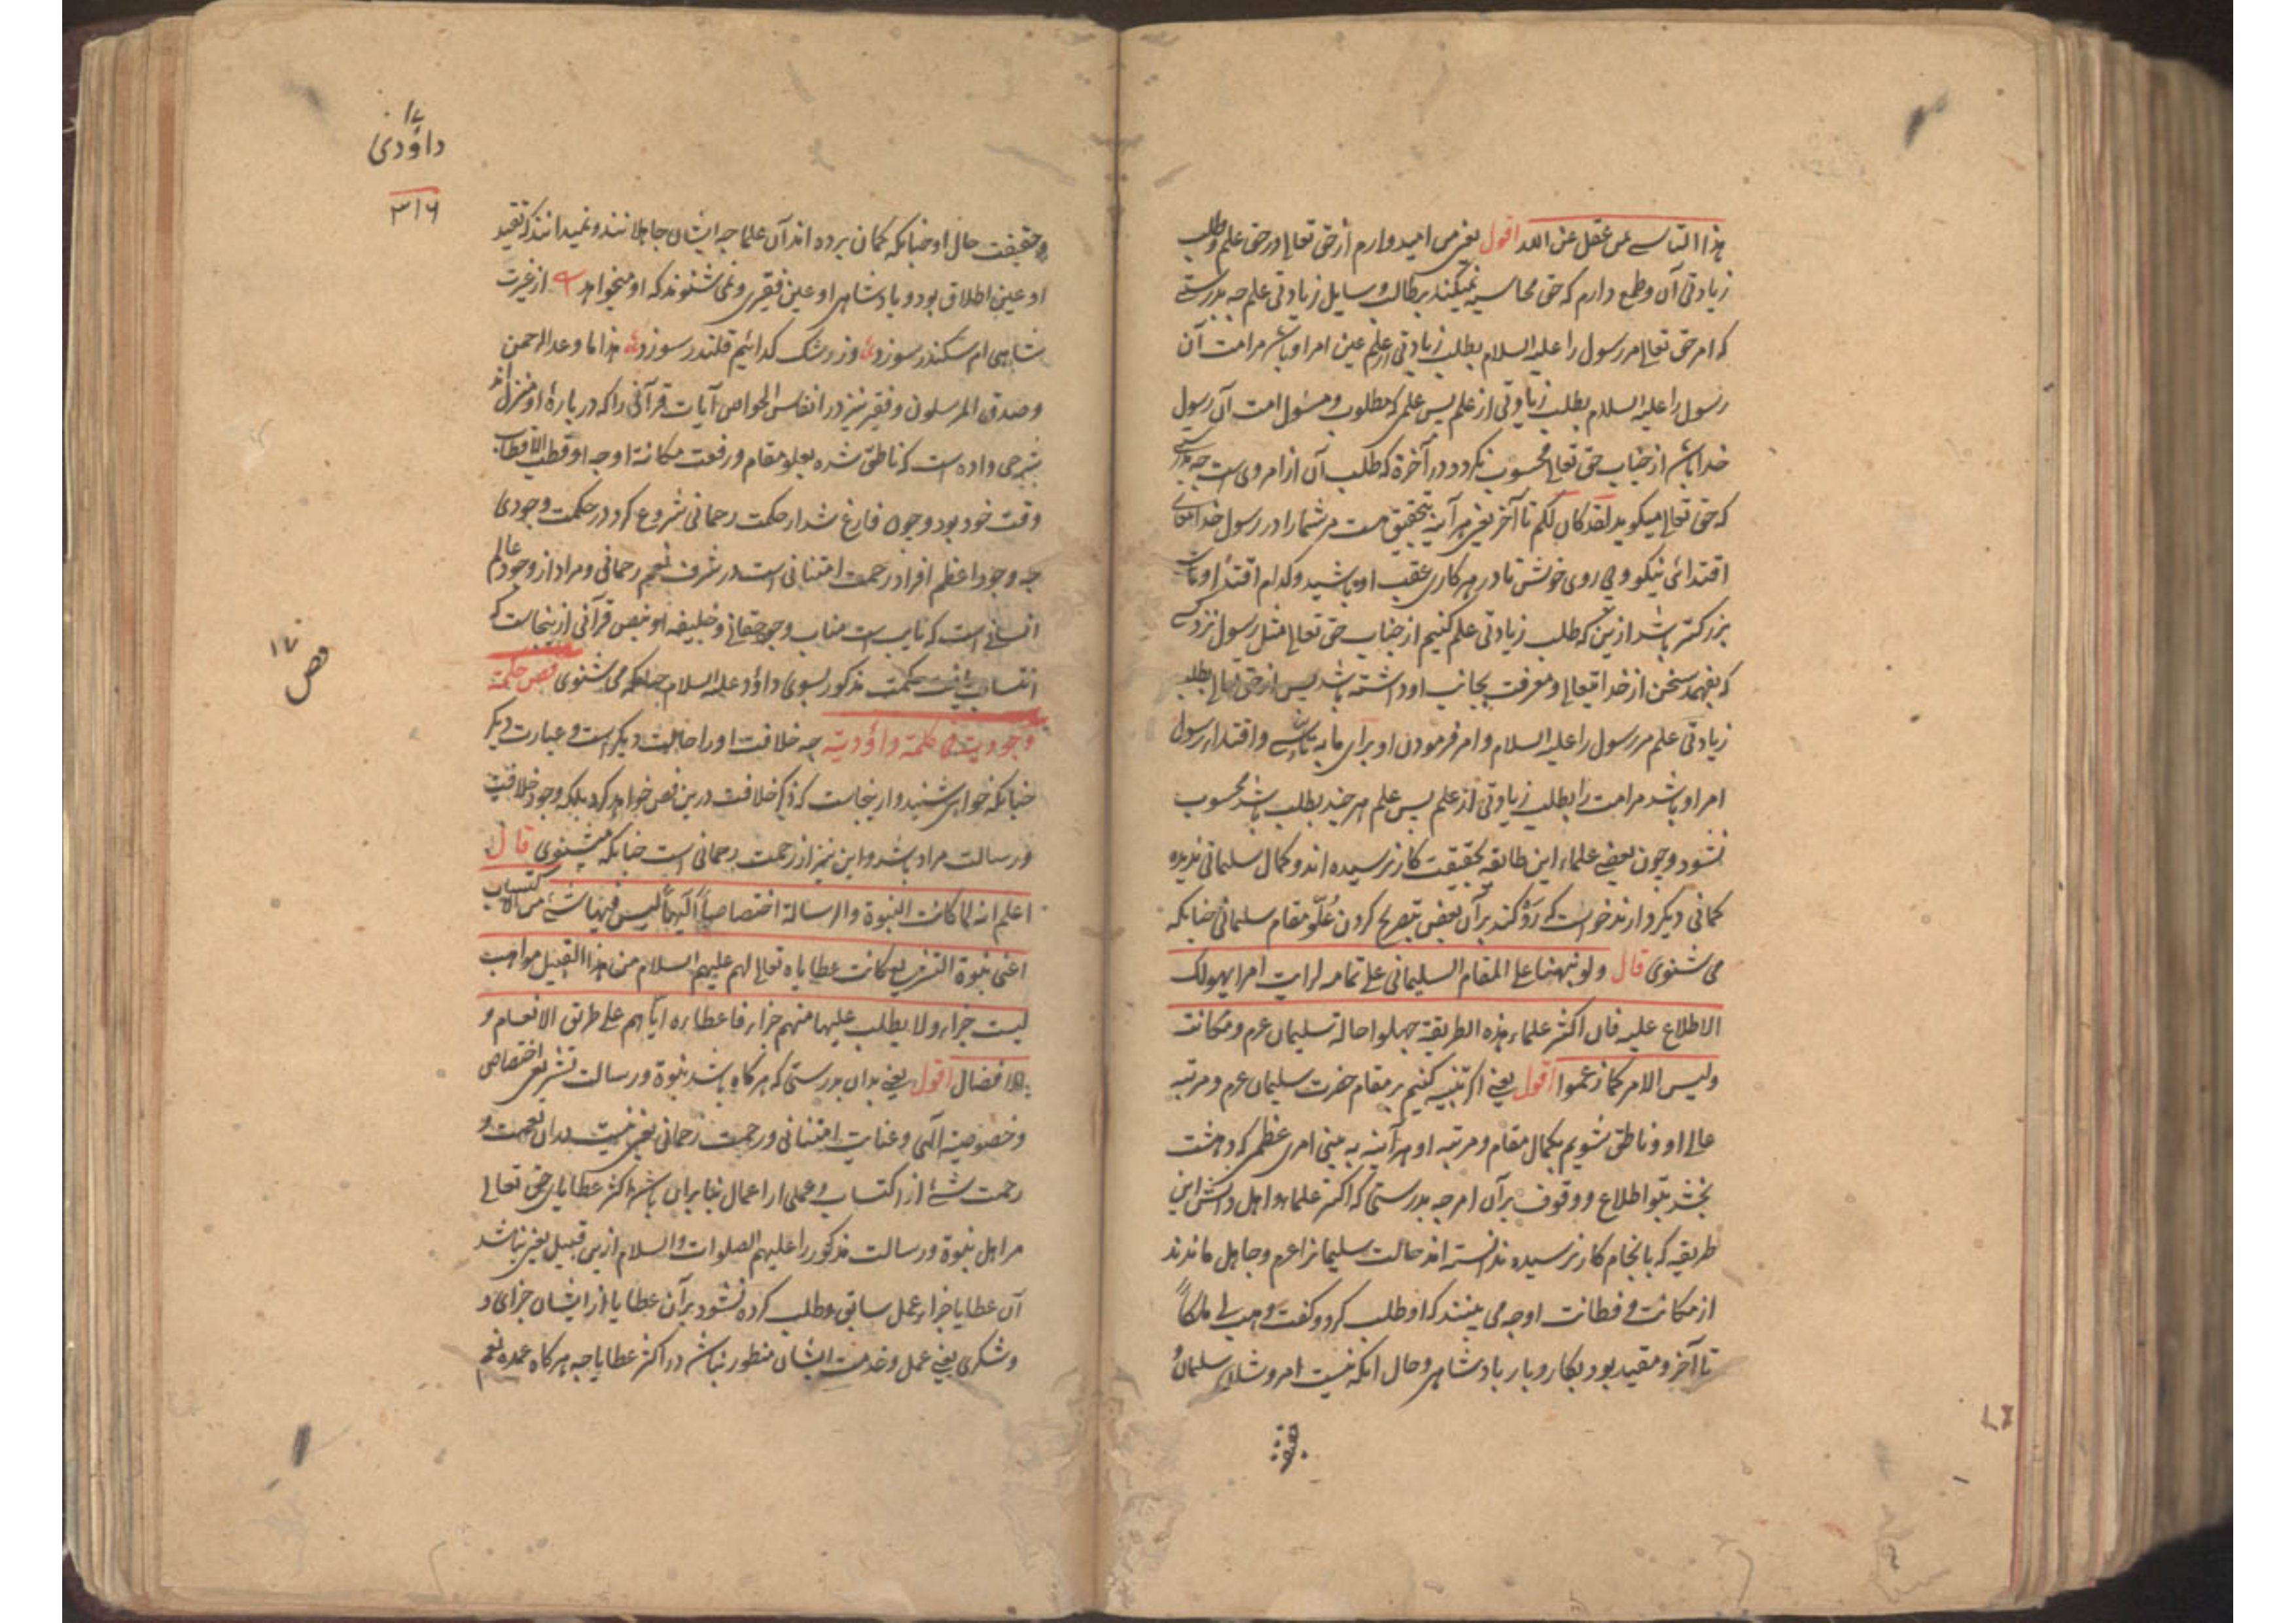 هذا التأسے ممن عقل عن الله اقول یعنی من امیدوارم از حق تعالے در حق علم و طلب
زیادتی آن و طمع دارم که حق محاسبه نمیکند بر طالب و سایل زیادتی علم چه بدرستے
که امر حق تعالے مر رسول را علیه السلام بطلب زیادتی از علم عین امر او باشد مر امت آن
رسول را علیه السلام بطلب زیادتی از علم پس علمی که مطلوب و مسئول امت آن رسول
خدا باشد از جناب حق تعالے محسوب نگردد در آخرة که طلب آن از امر وی است چه بدرستے
که حق تعالے میکوید لقد کان لکم تا آخر یعنی هر آینه بتحقیق هست مر شما را در رسول خدا تعالے
اقتدائی نیکو و پی روی خوش تا در هر کاری عقب او باشید و کدام اقتدا و تاسے
بزرکتر باشد ازین که طلب زیادتی علم کنیم از جناب حق تعالے مثل رسول نزد کسے
که بفهمد سخن از خدا تعالے و معرفت بجانب او داشته باشد پس از حق تعالے بطلب
زیادتی علم مر رسول را علیه السلام و امر فرمودن او برای ما به تاسے و اقتدای رسول
امر او باشد مر امت را بطلب زیادتی از علم پس علم هر چند بطلب باشد محسوب
نشود و چون بعضے علماء این طایفه بحقیقت کار نرسیده اند و کمال سلیمانی ندیده
کمانی دیکر دارند خواست که رد کند بر آن بعض بتصریح کردن علو مقام سلیمانی چنانکه
می شنوی قال ولو نبهنا علے المقام السلیمانی علے تمامه لرایت امرا یهولک
الاطلاع علیه فان اکثر علماء هذه الطریقة جهلوا حالة سلیمان عم و مکانته
ولیس الامر کما زعموا اقول یعنے اکر تنبیه کنیم بر مقام حضرت سلیمان عم و مرتبه
عالے او و ناطق شویم بکمال مقام و مرتبه او هر آینه به بینی امری عظمی که دهشت
بخشد بتو اطلاع و وقوف بر آن امر چه بدرستی که اکثر علماء و اهل دانش این
طریقه که بانجام کار نرسیده ندانسته اند حالت سلیمانرا عم و جاهل ماندند
از مکانت و فطانت او چه می بینند که او طلب کرد و کفت وهب لے ملکاً
تا آخر و مقید بود بکار و بار بادشاهی و حال آنکه نیست امر و شان سلیمان و
۱۷
داؤدی
۳۱۶
و حقیقت حال او چنانکه کمان برده اند آن علما چه ایشان جاهلانند و نمیدانند که تقید
او عین اطلاق بود و بادشاهی او عین فقیری و نمی شنوند که او میخواهد از غیرت
شاهی ام سکندر سوزد وز رشک کدائیم قلندر سوزد هذا ما وعد الرحمن
وصدق المرسلون و فقیر نیز در انفاس الخواص آیات قرآنی را که در باره او منزل اند
شرحی داده است که ناطق شده بعلو مقام و رفعت مکانة او چه او قطب الاقطاب
وقت خود بود و چون فارغ شد از حکمت رحمانی شروع کرد در حکمت وجودی
چه وجود اعظم افراد رحمت امتنانی است در شرف نعیم رحمانی و مراد از وجود عالم
انسانے است که نایب است مناب وجود حقانے و خلیفه او بنص قرآنی ازینجاست که
انتساب یافت حکمت مذکور بسوی داؤد علیه السلام چنانکه می شنوی فص حکمة
وجودیت فی کلمة داؤدیة چه خلافت او را حالیت دیکر است و عبارت دیکر
چنانکه خواهی شنید و ازینجاست که ذکر خلافت درین فص خواهد کرد بلکه وجود خلافت
و رسالت مراد باشد و این نیز از رحمت رحمانی است چنانکه میشنوی قال
اعلم انه لما کانت النبوة والرسالة اختصاصاً آلهیاً لیس فیها شےء من الاکتساب
اعنی نبوة التشریع کانت عطایاه تعالے لهم علیهم السلام من هذا القبیل مواهب
لیست جزاء ولا یطلب علیها منهم جزاء فاعطاءه ایاهم علے طریق الانعام و
الافضال اقول یعنے بدان بدرستی که هر کاه باشد نبوة و رسالت تشریعی اختصاصی
و خصوصیة آلهی و عنایت امتنانی و رحمت رحمانی یعنی نیست بدان نعمت و
رحمت شےء از اکتساب و عملی از اعمال بنا بران باشد اکثر عطایای حق تعالے
مر اهل نبوة و رسالت مذکور را علیهم الصلوات والسلام ازین قبیل یعنی نباشد
آن عطایا جزاء عمل سابق و طلب کرده نشود بر آن عطایا از ایشان جزای و
و شکری یعنے عمل و خدمت ایشان منظور نباشد در اکثر عطایا چه هر کاه عمده نعم
فص ۱۷